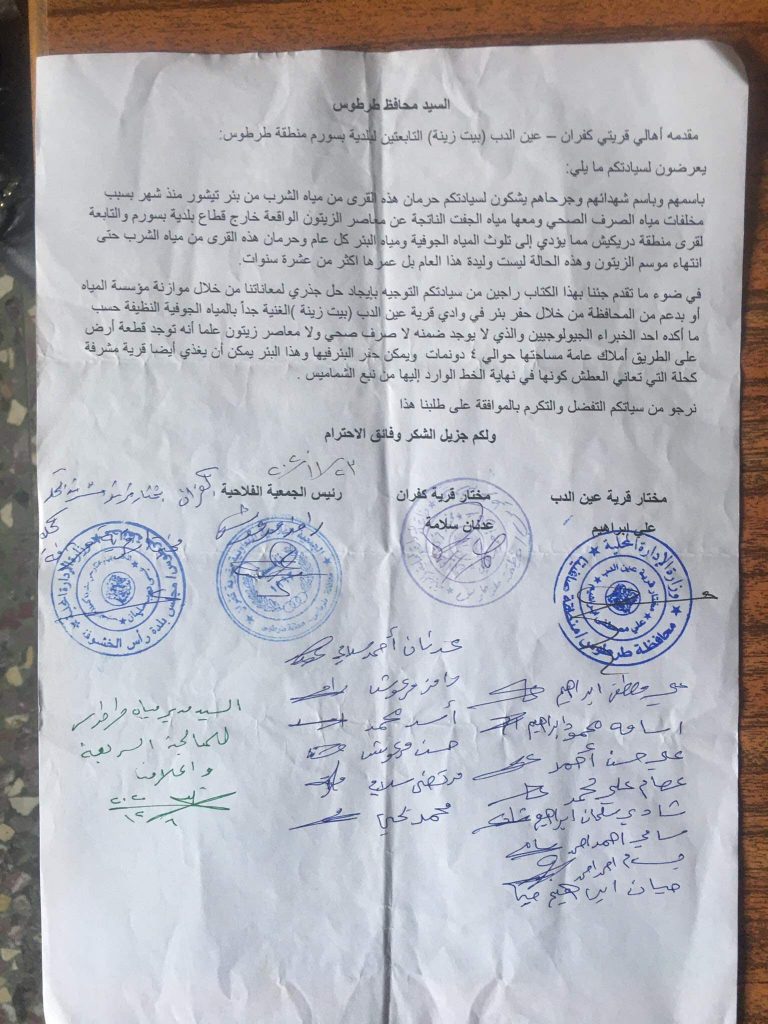 السيد محافظ طرطوس
مقدمه أهالي قريتي كفران – عين الدب (بيت زينة) التابعتين لبلدية بسورم منطقة طرطوس:
يعرضون لسيادتكم ما يلي:
باسمهم وباسم شهدائهم وجرحاهم يشكون لسيادتكم حرمان هذه القرى من مياه الشرب من بئر تيشور منذ شهر بسبب
مخلفات مياه الصرف الصحي ومعها مياه الجفت الناتجة عن معاصر الزيتون الواقعة خارج قطاع بلدية بسورم والتابعة
لقرى منطقة دريكيش مما يؤدي إلى تلوث المياه الجوفية ومياه البئر كل عام وحرمان هذه القرى من مياه الشرب حتى
انتهاء موسم الزيتون وهذه الحالة ليست وليدة هذا العام بل عمرها اكثر من عشرة سنوات.
في ضوء ما تقدم جئنا بهذا الكتاب راجين من سيادتكم التوجيه بإيجاد حل جذري لمعاناتنا من خلال موازنة مؤسسة المياه
أو بدعم من المحافظة من خلال حفر بئر في وادي قرية عين الدب (بيت زينة )الغنية جداً بالمياه الجوفية النظيفة حسب
ما أكده احد الخبراء الجيولوجيين والذي لا يوجد ضمنه لا صرف صحي ولا معاصر زيتون علما أنه توجد قطعة أرض
على الطريق أملاك عامة مساحتها حوالي ٤ دونمات ويمكن حفر البئرفيها وهذا البئر يمكن أن يغذي أيضا قرية مشرفة
كحلة التي تعاني العطش كونها في نهاية الخط الوارد إليها من نبع الشماميس .
نرجو من سياتكم التفضل والتكرم بالموافقة على طلبنا هذا
ولكم جزيل الشكر وفائق الاحترام
٢٠٢٠/١١/٢٣
مختار قرية عين الدب
مختار قرية كفران
رئيس الجمعية الفلاحية
علي ابراهيم
عدنان سلامة
وزارة الإدارة المحلية
مختار قرية عين الدب
محافظة طرطوس
مجلس بلدة رأس الخشوفة
عدنان أحمد سلامة
علي مصطفى ابراهيم
رامز مرعوش
اسامه محمود ابراهيم
أسد محمد
علي حسن أحمد
حسن مرعوش
عصام علي محمد
مرتضى سلامة
شادي سلمان ابراهيم
محمد يحيى
سامي احمد
حيان ابراهيم
السيد مدير مياه طرطوس
للمعالجة السريعة
و اعلامنا
٢٠٢٠
١٢/٨